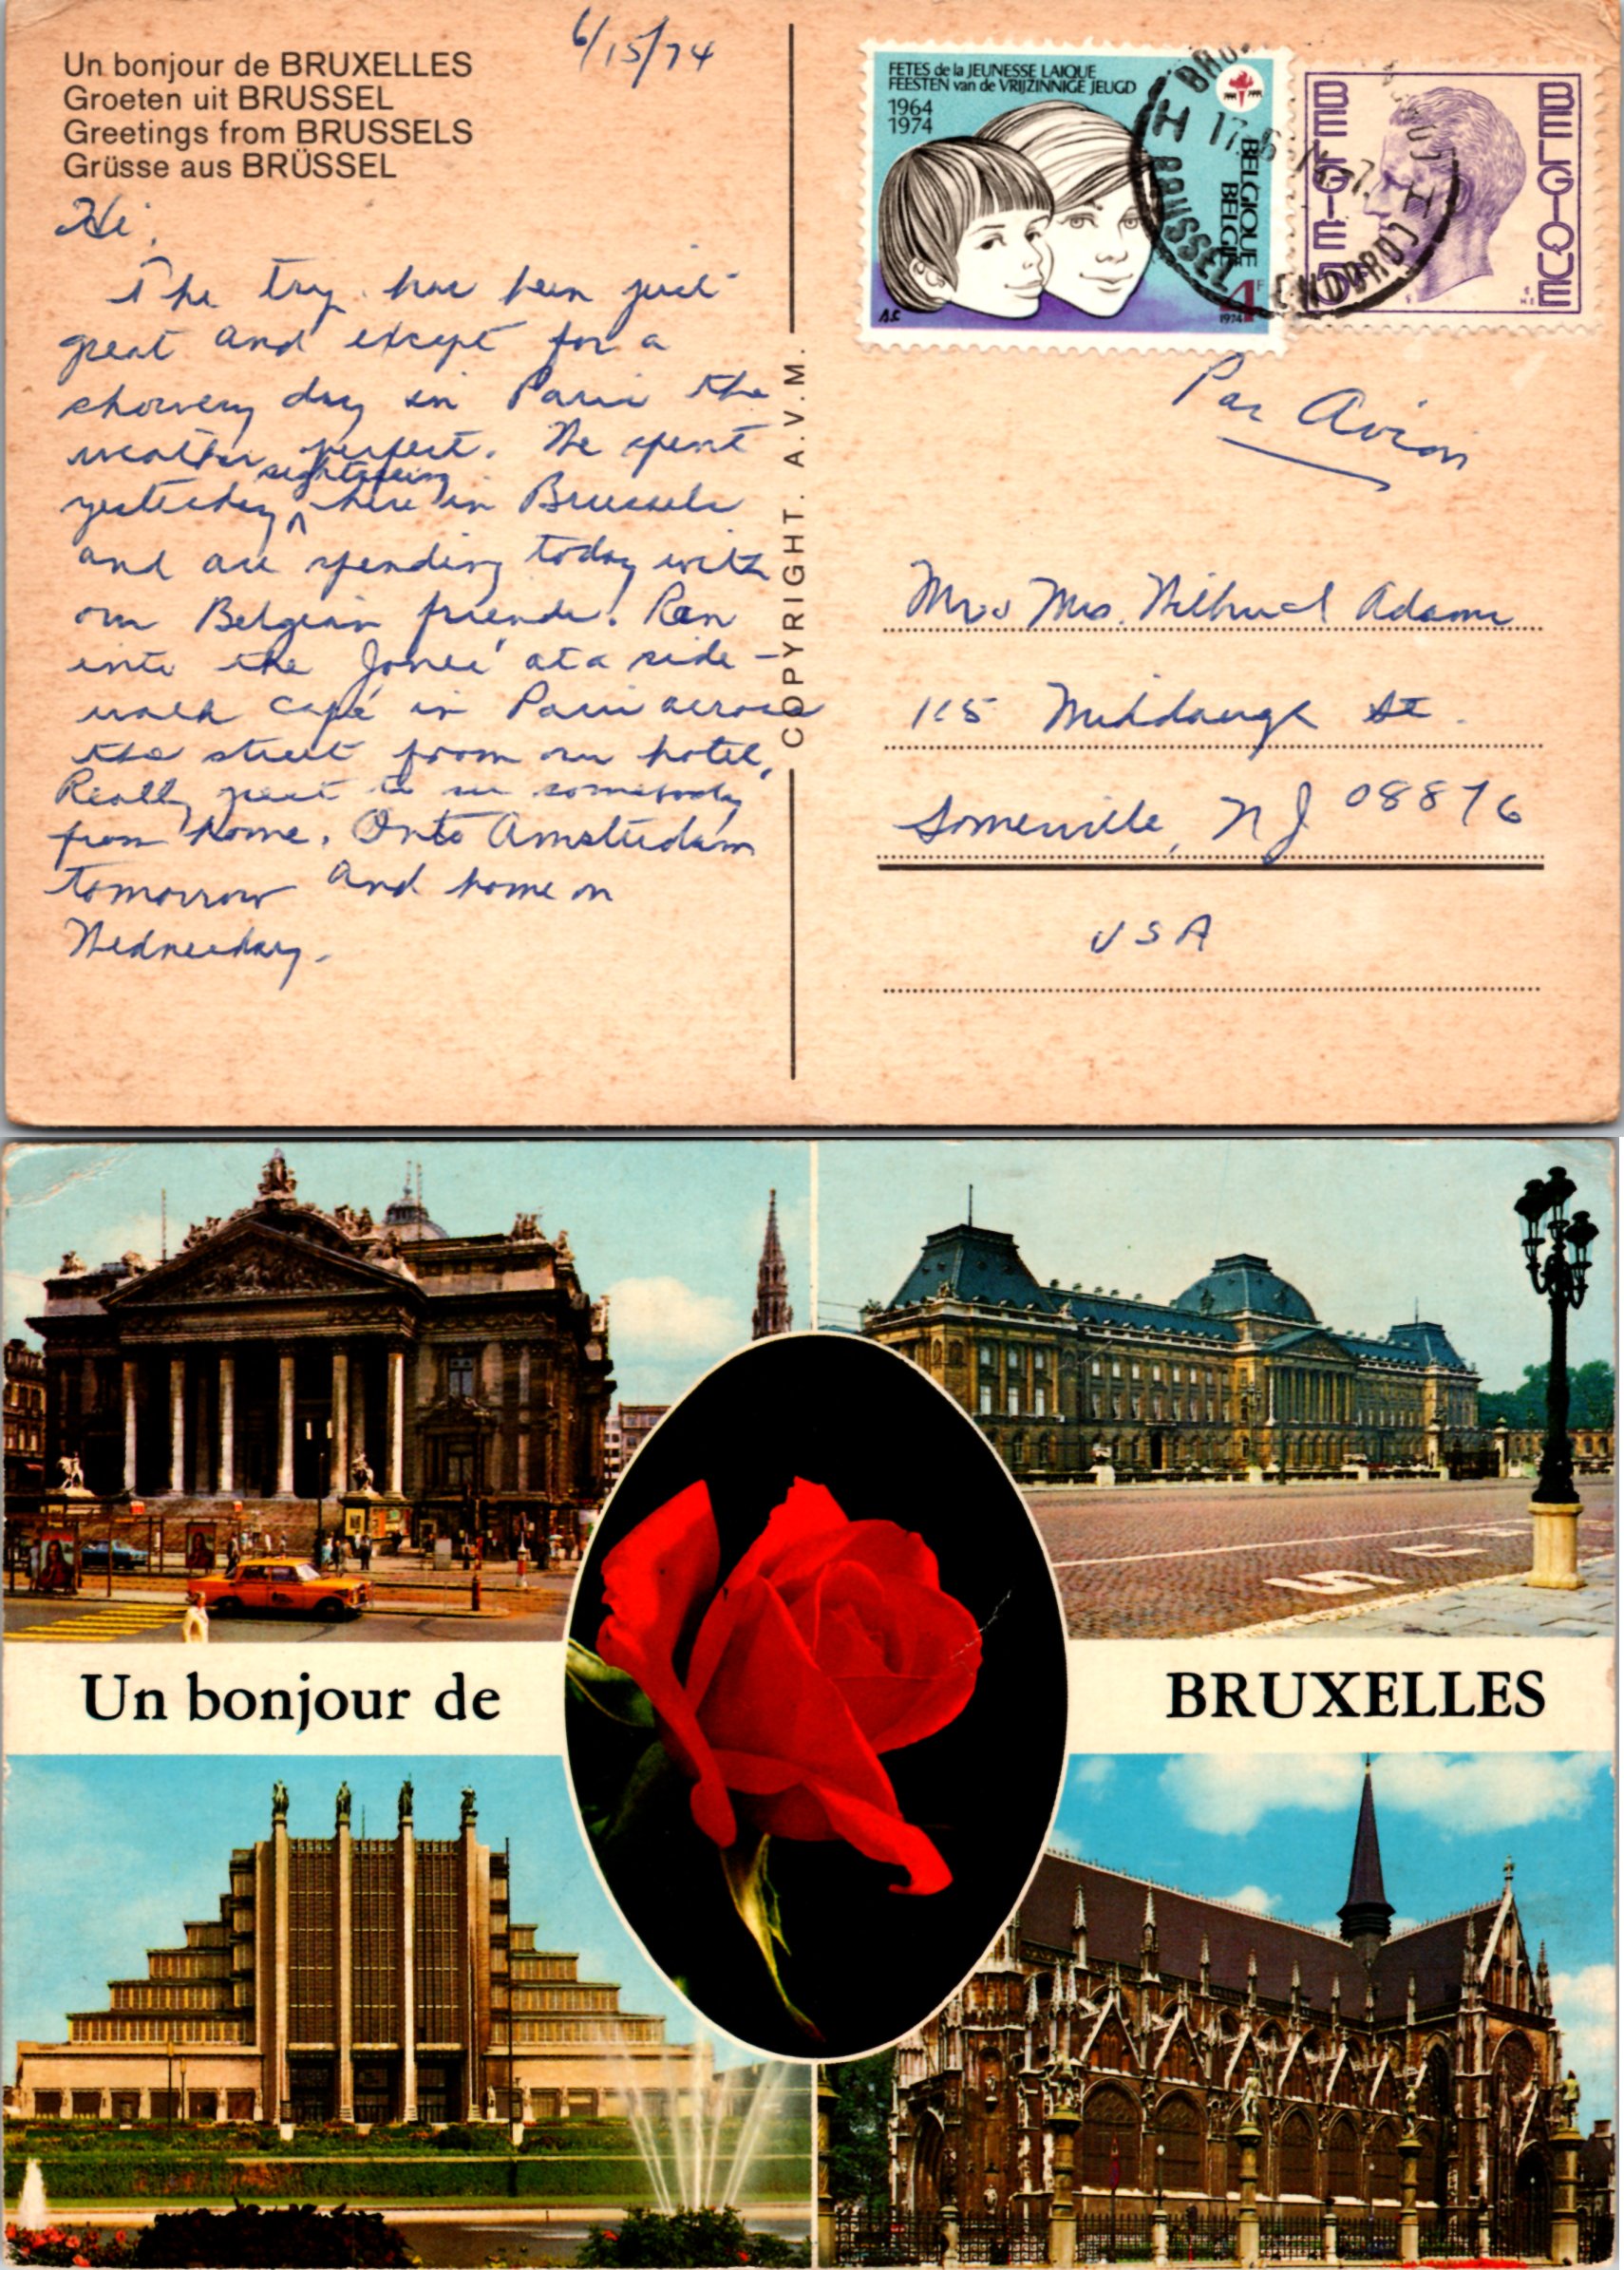 Un bonjour de BRUXELLES
Groeten uit BRUSSEL
Greetings from BRUSSELS
Grüsse aus BRÜSSEL
6/15/74
Hi,
The trip has been just
great and except for a
showery day in Paris the
weather perfect. We spent
yesterday sightseeing here in Brussels
and are spending today with
our Belgian friends. Ran
into the Jones' at a side-
walk café in Paris across
the street from our hotel.
Really great to see somebody
from home. Onto Amsterdam
tomorrow and home on
Wednesday.
COPYRIGHT. A.V.M.
FETES de la JEUNESSE LAIQUE
FEESTEN van de VRIJZINNIGE JEUGD
1964
1974
BELGIQUE
BELGIE
4F
1974
BELGIE
BELGIQUE
BRUSSEL
Par Avion
Mr & Mrs. Adams
Middaugh St.
Somerville, NJ 08876
USA
Un bonjour de BRUXELLES